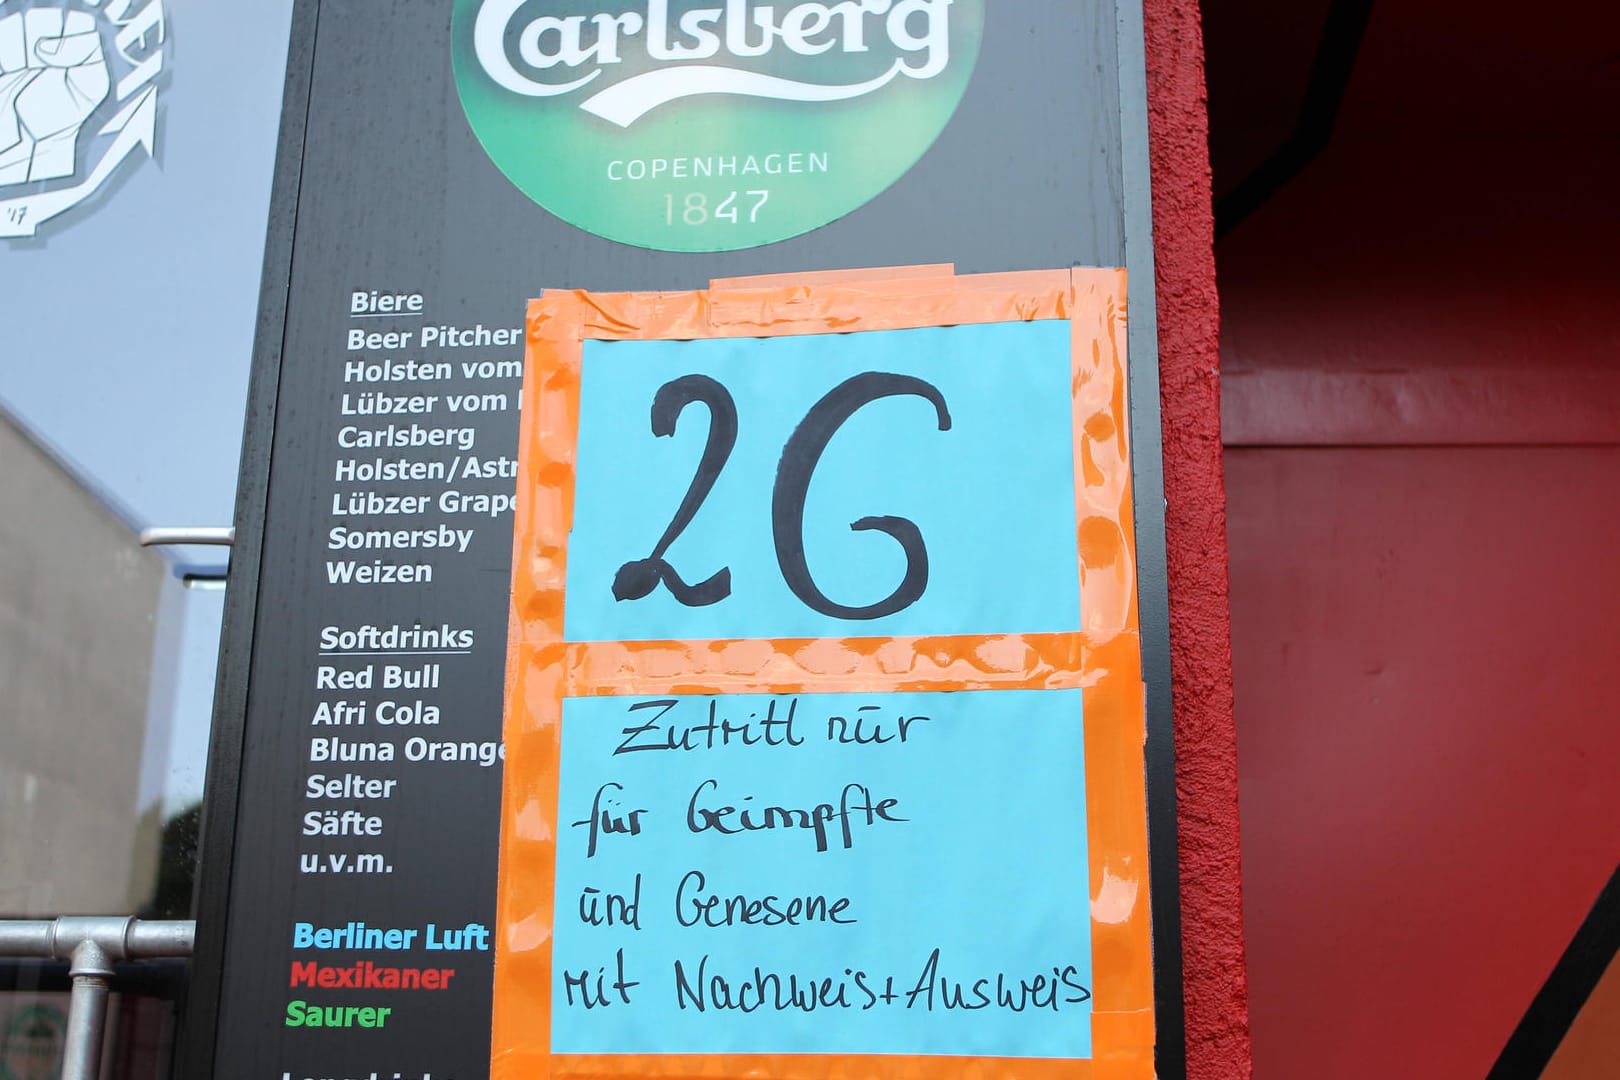 Carlsberg
COPENHAGEN
1847
'17
Biere
Beer Pitcher
Holsten vom
Lübzer vom
Carlsberg
Holsten/Astr
Lübzer Grape
Somersby
Weizen
Softdrinks
Red Bull
Afri Cola
Bluna Orange
Selter
Säfte
u.v.m.
Berliner Luft
Mexikaner
Saurer
2G
Zutritt nur
für Geimpfte
und Genesene
mit Nachweis+Ausweis